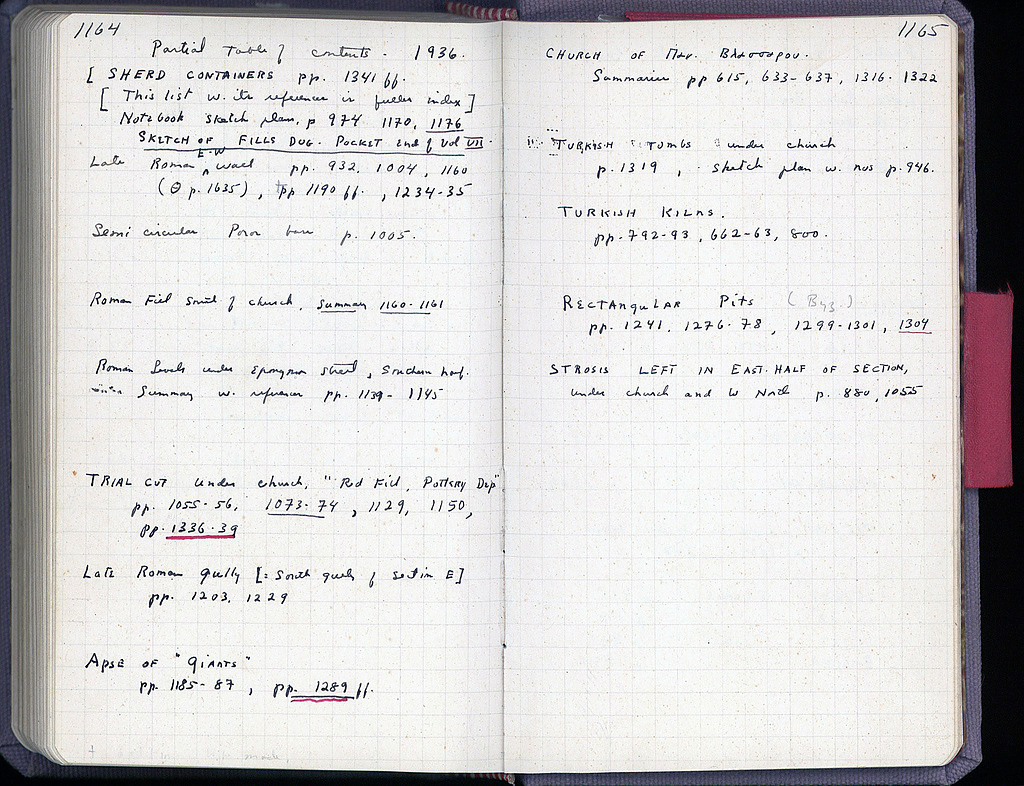 1164
Partial Table of contents. 1936.
[ SHERD CONTAINERS pp. 1341 ff.
[ This list w. its references is fuller index]
Notebook sketch plan, p 974 1170, 1176
SKETCH OF FILLS DUG. POCKET end of Vol VII.
Late Roman E-W wall pp. 932, 1004, 1160
(Θ p. 1635), pp 1190 ff., 1234-35
Semi circular Poros base p. 1005.
Roman Fill South of church, Summary 1160-1161
Roman levels under Eponymon street, Southern half.
Summary w. references pp. 1139-1145
TRIAL CUT under church, "Red Fill, Pottery Dep"
pp. 1055-56, 1073-74, 1129, 1150,
pp. 1336-39
Late Roman Gully [= South gully of set in E]
pp. 1203, 1229
Apse of "Giants"
pp. 1185-87, pp. 1289 ff.
1165
CHURCH OF Παν.
Summaries pp 615, 633-637, 1316-1322
TURKISH "TOMBS" under church
p. 1319, sketch plan w. nos p. 946.
TURKISH KILNS.
pp. 792-93, 662-63, 800.
RECTANGULAR Pits (Byz.)
pp. 1241, 1276-78, 1299-1301, 1304
STROSIS LEFT IN EAST-HALF OF SECTION,
under church and to North p. 880, 1055